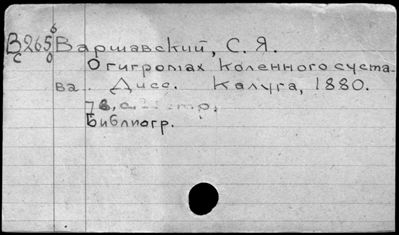 B265 6 Варшавский, С. Я.
С 0 О гигромах коленного суста-
ва.. Дисс. Калуга, 1880.
стр.
Библиогр.